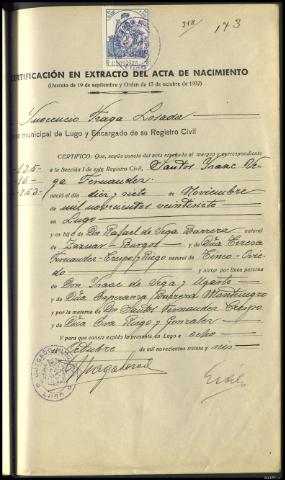 318/ 173
CERTIFICACIÓN EN EXTRACTO DEL ACTA DE NACIMIENTO
(Decreto de 19 de septiembre y Orden de 15 de octubre de 1932)
Inocencio Fraga Losada
ez municipal de Lugo y Encargado de su Registro Civil
CERTIFICO: Que, según consta del acta reseñada al margen y correspondiente
135- a la Sección 1.ª de este Registro Civil, Santos Isaac Ve-
16- ga Fernandez
nació el día diez y siete de Noviembre
de mil novecientos veintisiete
en Lugo
y es hijo de Don Rafael de Vega Barrera natural
de Burgos y de Doña Teresa
Fernandez-Crespo y Riego natural de Tineo-Ovie-
do y nieto por línea paterna
de Don Isaac de Vega y Ugarte
y de Doña Esperanza Barrera Montenegro
y por la materna de Don Santos Fernandez Crespo
y de Doña Eva Riego y Gonzalez
Y para que conste expido la presente en Lugo a ocho
Octubre de mil novecientos treinta y seis